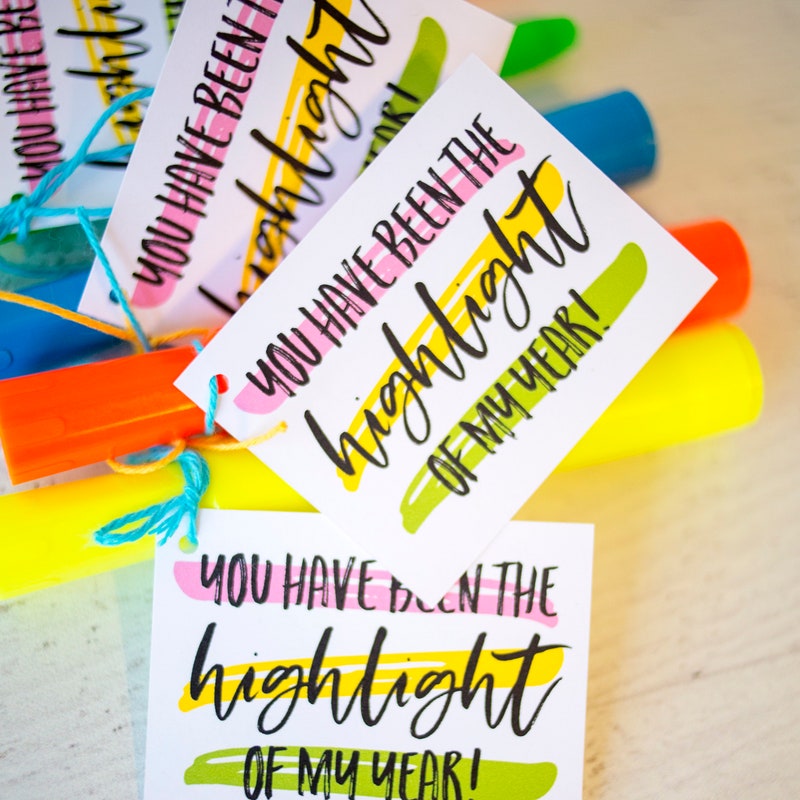 YOU HAVE BEEN
highlight
YOU HAVE BEEN
highlight
YEAR!
YOU HAVE BEEN THE
highlight
OF MY YEAR!
YOU HAVE BEEN THE
highlight
OF MY YEAR!